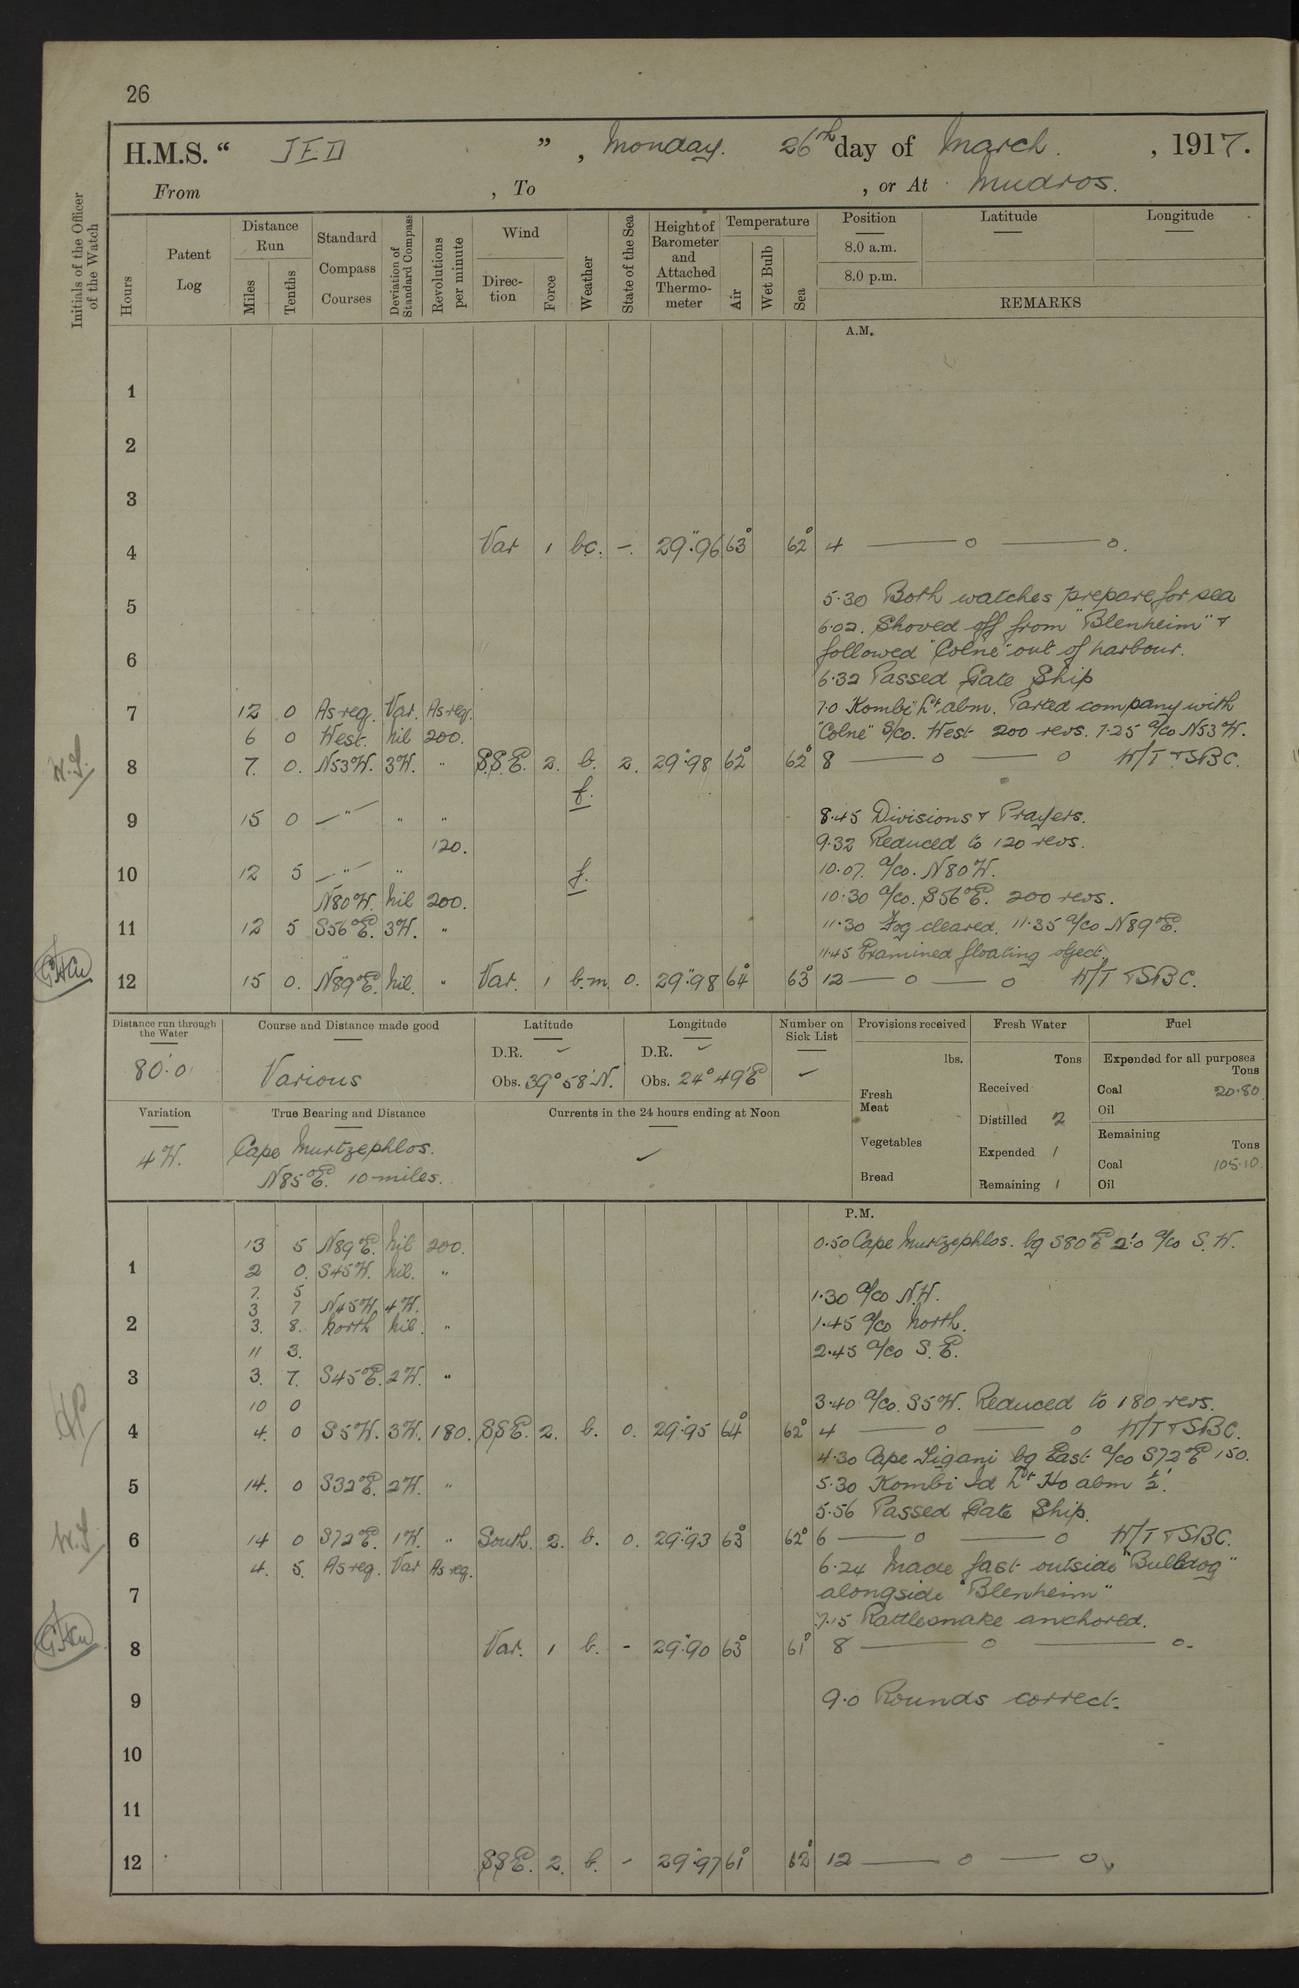 26
H.M.S. “ JED ” , Monday. 26th day of March. , 1917.
From , To , or At Mudros.
Initials of the Officer of the Watch
Hours
Patent Log
Distance Run
Miles
Tenths
Standard Compass Courses
Deviation of Standard Compass
Revolutions per minute
Wind
Direction
Force
Weather
State of the Sea
Height of Barometer and Attached Thermometer
Temperature
Air
Wet Bulb
Sea
Position
Latitude
Longitude
8.0 a.m.
8.0 p.m.
REMARKS
A.M.
1
2
3
4 Var 1 bc. - 29".96 63° 62° 4 —— o —— o.
5 5.30 Both watches prepare for sea
6.02. Shoved off from "Blenheim" &
6 followed "Colne" out of harbour.
6.32 Passed Gate Ship
7 12 0 As req. Var. As req. 7.0 Kombi Lt. abm. Parted company with
6 0 West. nil 200. "Colne" S/co. West 200 revs. 7.25 a/co N53W.
8 7. 0. N53W. 3W. " S.S.E. 2. b. 2. 29".98 62° 62° 8 —— o —— o H/T & SBC.
f.
9 15 0 —"— " " 8.45 Divisions & Prayers.
120. 9.32 Reduced to 120 revs.
10 12 5 —"— " f. 10.07. a/co. N80W.
N80W. nil 200. 10.30 a/co. S56°E. 200 revs.
11 12 5 S56°E. 3W. " 11.30 Fog cleared. 11.35 a/co N89°E.
11.45 Examined floating object.
12 15 0. N89°E. nil. " Var. 1 b.m. 0. 29".98 64° 63° 12 — o — o H/T & SBC.
Distance run through the Water
80'.0
Course and Distance made good
Various
Latitude
D.R. ✓
Obs. 39° 58' N.
Longitude
D.R. ✓
Obs. 24° 49' E
Number on Sick List
Provisions received
lbs.
Fresh Meat
Vegetables
Bread
Fresh Water
Tons
Received
Distilled 2
Expended 1
Remaining 1
Fuel
Expended for all purposes
Tons
Coal 20.80
Oil
Remaining
Tons
Coal 105.10.
Oil
Variation
4W.
True Bearing and Distance
Cape Murtzephlos.
N85°E. 10 miles.
Currents in the 24 hours ending at Noon
✓
P.M.
13 5 N89°E. nil 200. 0.50 Cape Murtzephlos. bg S80°E 2'.0 a/co S.W.
1 2 0. S45W. nil. "
7. 5
3 7 N45W. 4W. 1.30 a/co N.W.
2 3. 8. North nil. " 1.45 a/co North.
11 3. 2.45 a/co S.E.
3 3. 7. S45°E. 2W. "
10 0 3.40 a/co. S5W. Reduced to 180 revs.
4 4. 0 S5W. 3W. 180. SSE. 2. b. 0. 29".95 64° 62° 4 —— o —— o H/T & SBC.
4.30 Cape Tigani bg East a/co S72°E 150.
5 14. 0 S32°E. 2W. " 5.30 Kombi Id Lt Ho abm ½'.
5.56 Passed Gate Ship.
6 14 0 S72°E. 1W. " South. 2. b. 0. 29".93 63° 62° 6 —— o —— o H/T & SBC.
4. 5. As req. Var As req. 6.24 Made fast outside "Bulldog"
7 alongside "Blenheim"
7.15 Rattlesnake anchored.
8 Var. 1 b. - 29".90 63° 61° 8 —— o —— o.
9 9.0 Rounds correct.
10
11
12 SSE. 2. b. - 29".97 61° 62° 12 —— o —— o